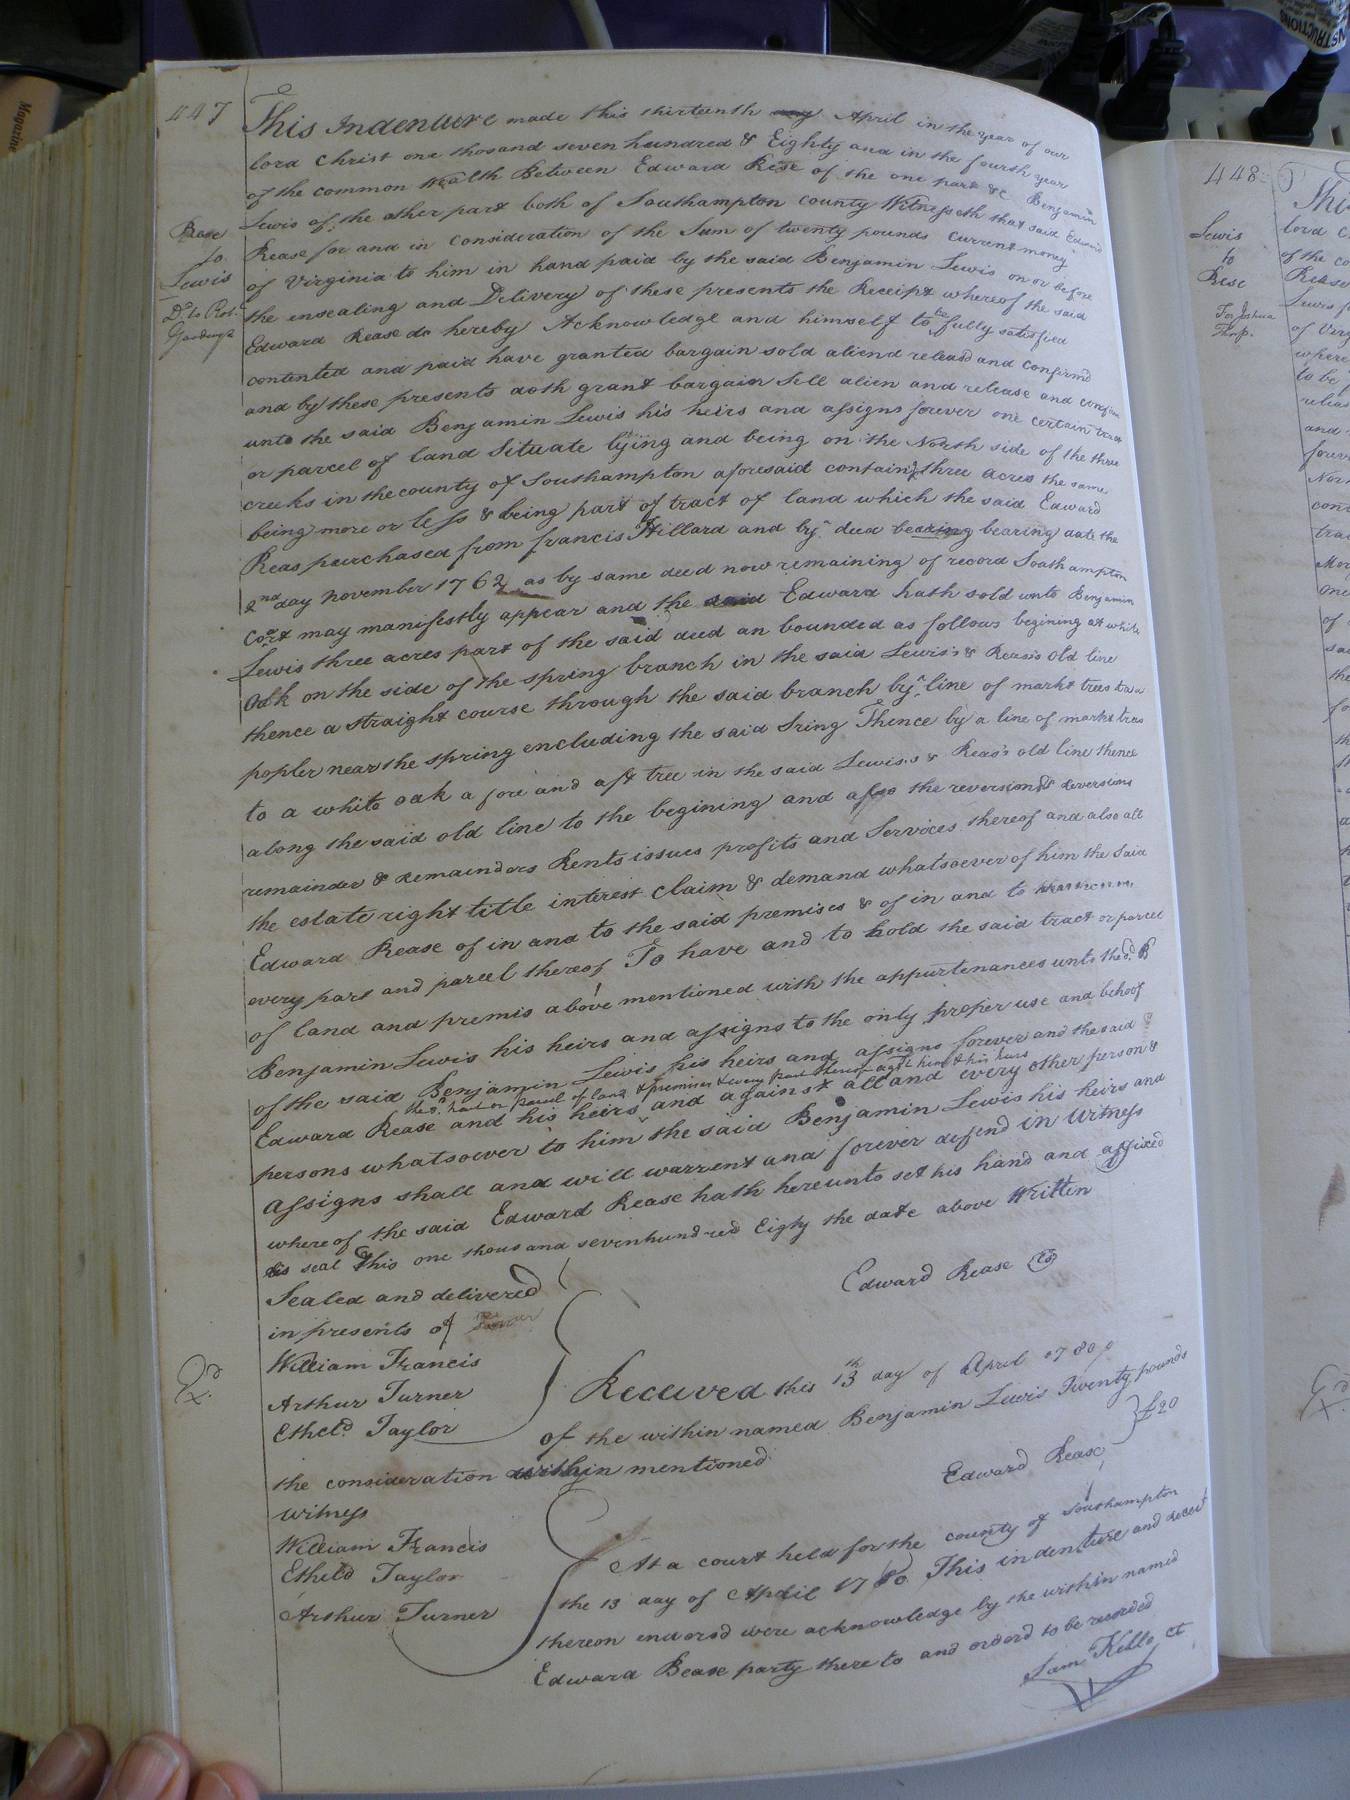 447
This Indenture made this thirteenth day April in the year of our
lord Christ one thosand seven hundred & Eighty and in the fourth year
of the common Wealth Between Edward Rese of the one part &c Benjamin
Lewis of the other part both of Southampton county Witnesseth that said Edward
Rease for and in consideration of the Sum of twenty pounds current money
of Virginia to him in hand paid by the said Benjamin Lewis on or before
the ensealing and Delivery of these presents the Receipt whereof the said
Edward Rease do hereby Acknowledge and himself to be fully satisfied
contented and paid have granted bargain sold aliend releasd and confirmd
and by these presents doth grant bargain Sell alien and release and confirm
unto the said Benjamin Lewis his heirs and assigns forever one certain tract
or parcel of land Situate lying and being on the North side of the three
creeks in the county of Southampton aforesaid containg three acres the same
being more or less & being part of tract of land which the said Edward
Reas purchased from francis Hillard and by deed bearing bearing date the
2nd day November 1762 as by same deed now remaining of record Southampton
Cort may manifestly appear and the said Edward hath sold unto Benjamin
Lewis three acres part of the said deed an bounded as follows begining at white
Oak on the side of the spring branch in the said Lewis's & Reas's Old line
thence a straight course through the said branch by line of markt trees to a
popler near the spring encluding the said Sring Thence by a line of markt trees
to a white oak a fore and aft tree in the said Lewis.s & Reas's old line thence
along the said old line to the begining and also the reversion & reversions
remainder & Remainders Rents issues profits and Services thereof and also all
the estate right title interest claim & demand whatsoever of him the Said
Edward Rease of in and to the said premises & of in and to
every part and parcel thereof To have and to hold the said tract or parcel
of land and premis above mentioned with the appurtenances unto the sd. B
Benjamin Lewis his heirs and assigns to the only proper use and behoof
of the said Benjamin Lewis his heirs and assigns forever and the said
the sd. tract or parcel of land & premises & every part thereof agst him & his heirs
Edward Rease and his heirs and against all and every other person &
persons whatsoever to him the said Benjamin Lewis his heirs and
assigns shall and will warrent and forever defend in Witness
where of the said Edward Rease hath hereunto set his hand and affixed
his seal this one thousand sevenhundred Eigty the date above Written
Sealed and delivered
in presents of
Edward Rease Ls
William Francis
Arthur Turner
Etheld. Taylor
Rese
to
Lewis
Dd. to Robt.
Exd.
Received this 13th day of April 1780
of the within named Benjamin Lewis Twenty pounds
the consideration within mentioned
£20
Edward Rease
witness
William Francis
Etheld Taylor
Arthur Turner
At a court held for the county of Southampton
the 13 day of April 1780 This indenture and receit
thereon endorsd were acknowledge by the within named
Edward Rease party there to and ordord to be recorded
Sam Kello Ct
448
Lewis
to
Rese
For Joshua
Thorp.
lord C
of the co
Rease
Lewis f
of Virg
where
to be
relea
and
forev
Nor
cont
trac
one
of
sai
the
Magazine
INSTRUCTIONS